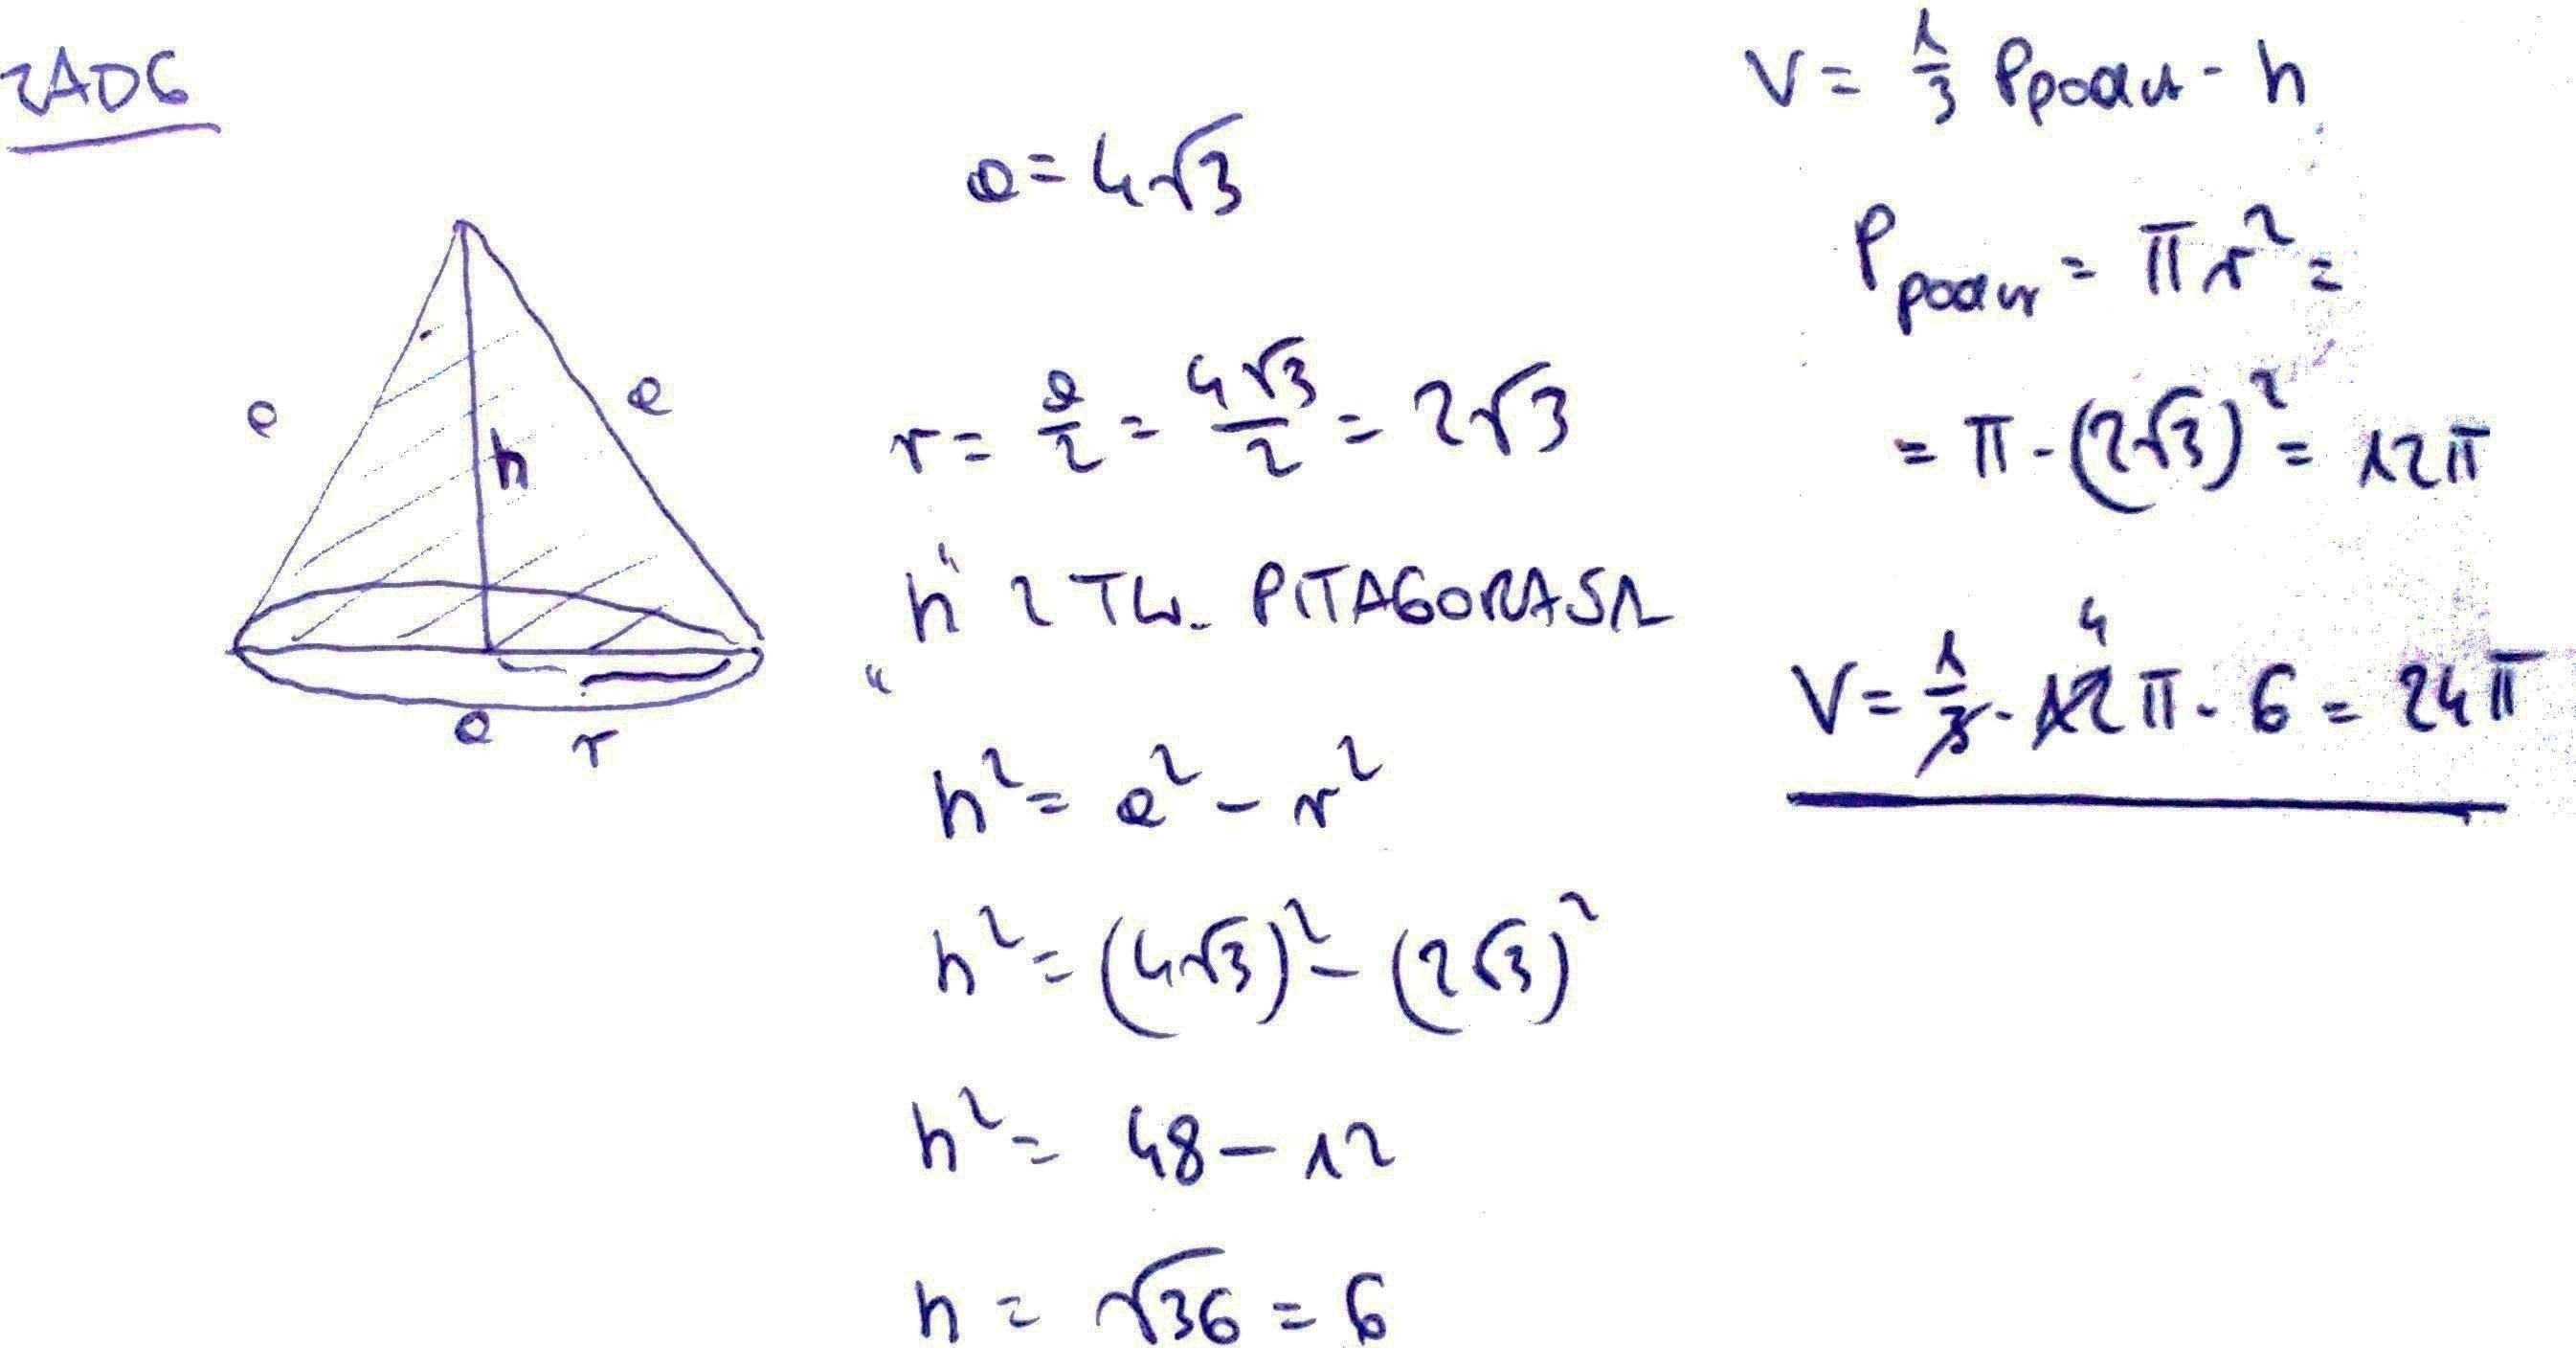 ZAD6
a
a
h
a
r
a = 4√3
r = a/2 = 4√3/2 = 2√3
"h" z TW. PITAGORASA
h² = a² - r²
h² = (4√3)² - (2√3)²
h² = 48 - 12
h = √36 = 6
V = 1/3 Ppodst · h
Ppodst = πr² =
= π · (2√3)² = 12π
4
V = 1/3 · 12π · 6 = 24π